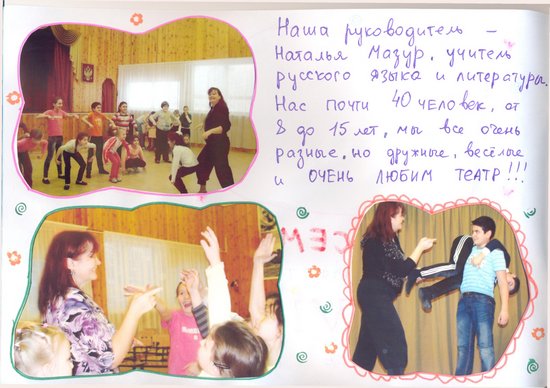 Наша руководитель –
Наталья Мазур, учитель
русского языка и литературы.
Нас почти 40 человек, от
8 до 15 лет, мы все очень
разные, но дружные, весёлые
и ОЧЕНЬ ЛЮБИМ ТЕАТР!!!